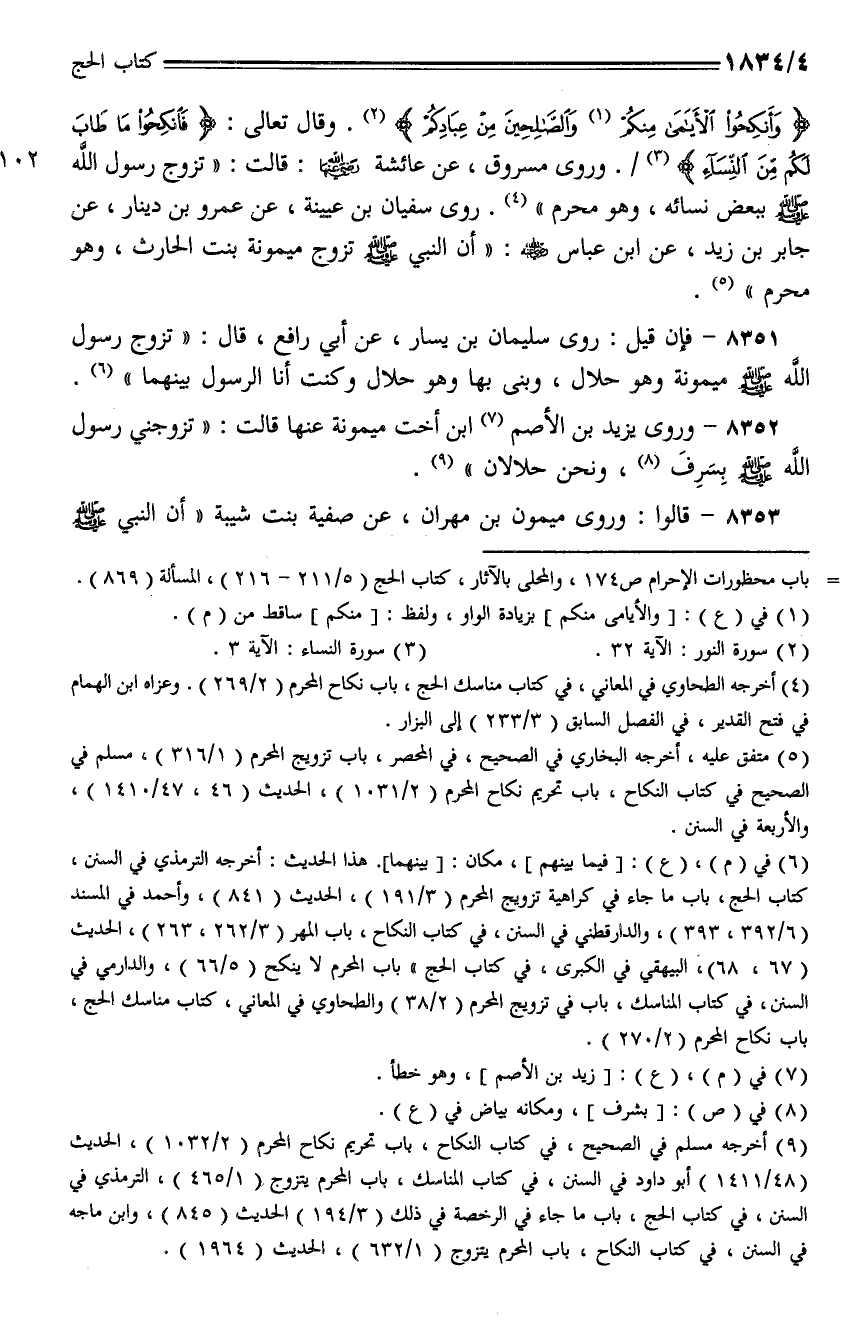 ١٨٣٤/٤ كتاب الحج
﴿ وَأَنكِحُوا۟ ٱلْأَيَـٰمَىٰ مِنكُمْ (١) وَٱلصَّـٰلِحِينَ مِنْ عِبَادِكُمْ ﴾ (٢) . وقال تعالى : ﴿ فَٱنكِحُوا۟ مَا طَابَ
لَكُم مِّنَ ٱلنِّسَآءِ ﴾ (٣) / . وروى مسروق ، عن عائشة رضي الله عنها : قالت : « تزوج رسول الله ١٠٢
ﷺ ببعض نسائه ، وهو محرم » (٤) . روى سفيان بن عيينة ، عن عمرو بن دينار ، عن
جابر بن زيد ، عن ابن عباس رضي الله عنه : « أن النبي ﷺ تزوج ميمونة بنت الحارث ، وهو
محرم » (٥) .
٨٣٥١ – فإن قيل : روى سليمان بن يسار ، عن أبي رافع ، قال : « تزوج رسول
اللَّه ﷺ ميمونة وهو حلال ، وبنى بها وهو حلال وكنت أنا الرسول بينهما » (٦) .
٨٣٥٢ – وروى يزيد بن الأصم (٧) ابن أخت ميمونة عنها قالت : « تزوجني رسول
اللَّه ﷺ بِسَرِفَ (٨) ، ونحن حلالان » (٩) .
٨٣٥٣ – قالوا : وروى ميمون بن مهران ، عن صفية بنت شيبة « أن النبي ﷺ
= باب محظورات الإحرام ص١٧٤ ، والمحلى بالآثار ، كتاب الحج ( ٢١١/٥ – ٢١٦ ) ، المسألة ( ٨٦٩ ) .
(١) في ( ع ) : [ والأيامى منكم ] بزيادة الواو ، ولفظ : [ منكم ] ساقط من ( م ) .
(٢) سورة النور : الآية ٣٢ . (٣) سورة النساء : الآية ٣ .
(٤) أخرجه الطحاوي في المعاني ، في كتاب مناسك الحج ، باب نكاح المحرم ( ٢٦٩/٢ ) . وعزاه ابن الهمام
في فتح القدير ، في الفصل السابق ( ٢٣٣/٣ ) إلى البزار .
(٥) متفق عليه ، أخرجه البخاري في الصحيح ، في المحصر ، باب تزويج المحرم ( ٣١٦/١ ) ، مسلم في
الصحيح في كتاب النكاح ، باب تحريم نكاح المحرم ( ١٠٣١/٢ ) ، الحديث ( ٤٦ ، ١٤١٠/٤٧ ) ،
والأربعة في السنن .
(٦) في ( م ) ، ( ع ) : [ فيما بينهم ] ، مكان : [ بينهما]. هذا الحديث : أخرجه الترمذي في السنن ،
كتاب الحج ، باب ما جاء في كراهية تزويج المحرم ( ١٩١/٣ ) ، الحديث ( ٨٤١ ) ، وأحمد في المسند
( ٣٩٢/٦ ، ٣٩٣ ) ، والدارقطني في السنن ، في كتاب النكاح ، باب المهر ( ٢٦٢/٣ ، ٢٦٣ ) ، الحديث
( ٦٧ ، ٦٨)، البيهقي في الكبرى ، في كتاب الحج » باب المحرم لا ينكح ( ٦٦/٥ ) ، والدارمي في
السنن ، في كتاب المناسك ، باب في تزويج المحرم ( ٣٨/٢ ) والطحاوي في المعاني ، كتاب مناسك الحج ،
باب نكاح المحرم ( ٢٧٠/٢ ) .
(٧) في ( م ) ، ( ع ) : [ زيد بن الأصم ] ، وهو خطأ .
(٨) في ( ص ) : [ بشرف ] ، ومكانه بياض في ( ع ) .
(٩) أخرجه مسلم في الصحيح ، في كتاب النكاح ، باب تحريم نكاح المحرم ( ١٠٣٢/٢ ) ، الحديث
( ١٤١١/٤٨ ) أبو داود في السنن ، في كتاب المناسك ، باب المحرم يتزوج ( ٤٦٥/١ ) ، الترمذي في
السنن ، في كتاب الحج ، باب ما جاء في الرخصة في ذلك ( ١٩٤/٣ ) الحديث ( ٨٤٥ ) ، وابن ماجه
في السنن ، في كتاب النكاح ، باب المحرم يتزوج ( ٦٣٢/١ ) ، الحديث ( ١٩٦٤ ) .